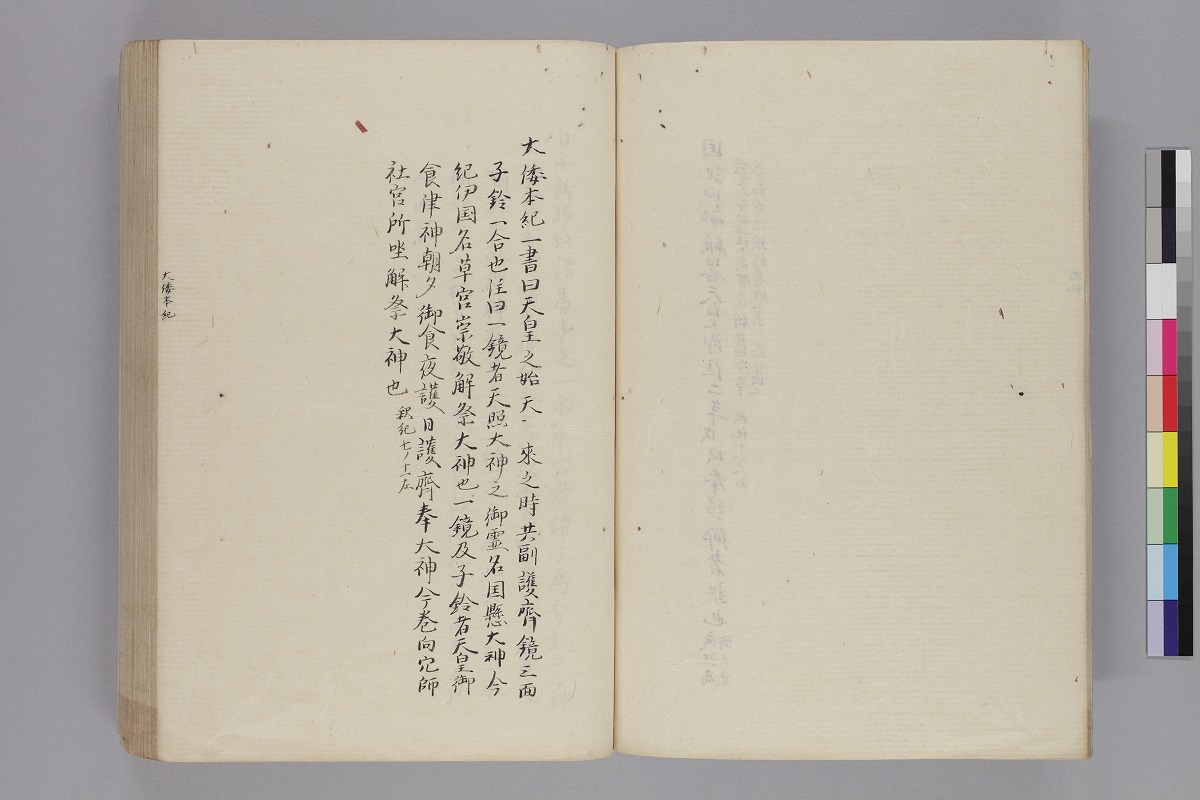 大倭本紀一書曰天皇之始天、来之時共副護齊鏡三面
子鈴一合也注曰一鏡者天照大神之御霊名国懸大神今
紀伊国名草宮崇敬解祭大神也一鏡及子鈴者天皇御
食津神朝夕御食夜護日護齊奉大神今巻向穴師
社宮所坐解祭大神也 釈紀七ノ十一左
大倭本紀